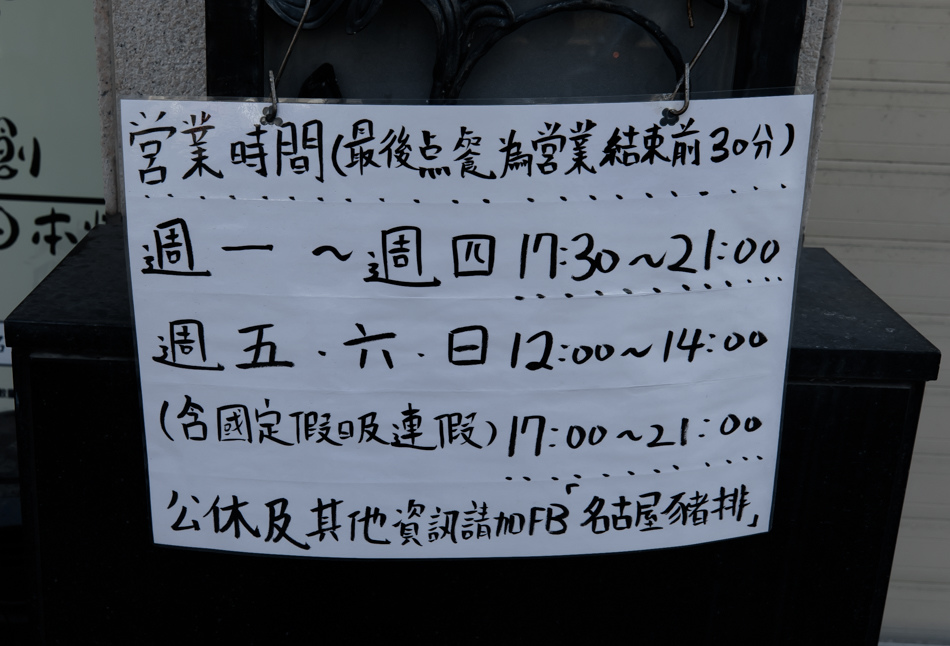 創
日本料
営業時間(最後点餐為営業結束前30分)
週一~週四17:30~21:00
週五.六.日12:00~14:00
(含國定假日及連假)17:00~21:00
公休及其他資訊請加FB「名古屋豬排」